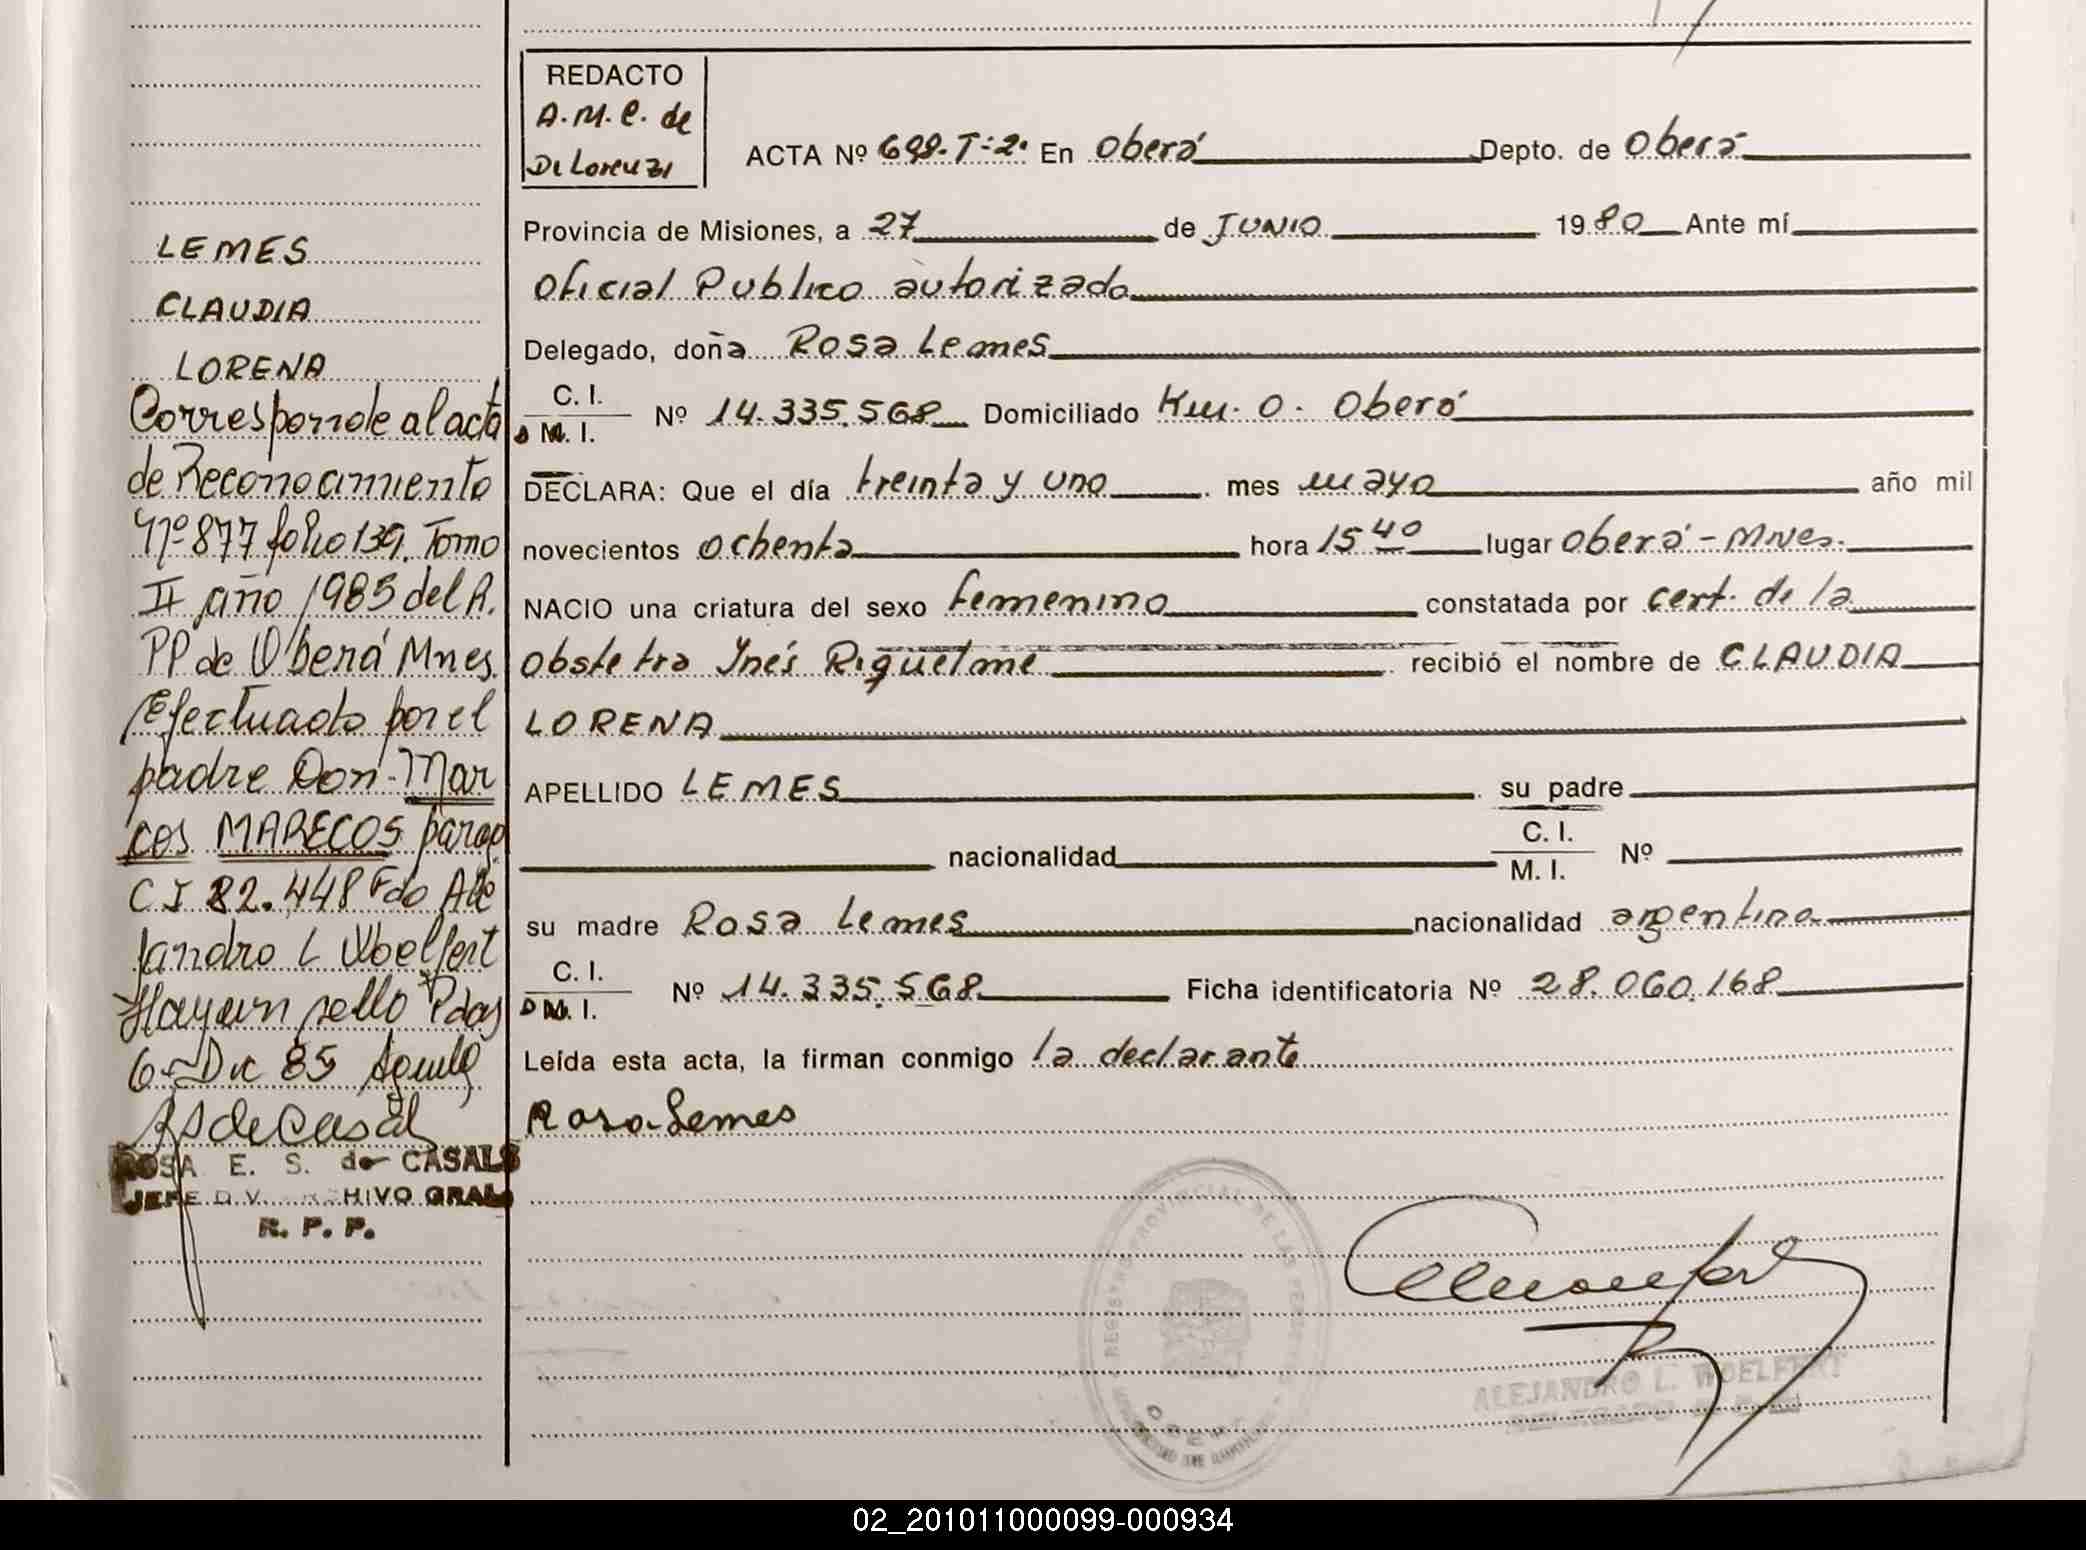 REDACTO
A.M.C. de
Di Lorenzi
ACTA Nº 698.T-2. En Oberá Depto. de Oberá
Provincia de Misiones, a 27 de JUNIO 1980 Ante mí
Oficial Publico autorizado
Delegado, doña Rosa Lemes
C. I.
D M. I. Nº 14.335.568 Domiciliado Km. 0. Oberá
DECLARA: Que el día treinta y uno mes mayo año mil
novecientos ochenta hora 15 40 lugar Oberá - Mnes.
NACIO una criatura del sexo femenino constatada por cert. de la
obstetra Inés Riquelme recibió el nombre de CLAUDIA
LORENA
APELLIDO LEMES su padre
nacionalidad C. I.
M. I. Nº
su madre Rosa Lemes nacionalidad argentina
C. I.
D M. I. Nº 14.335.568 Ficha identificatoria Nº 28.060.168
Leída esta acta, la firman conmigo la declarante
Rosa Lemes
LEMES
CLAUDIA
LORENA
Corresponde al acta
de Reconocimiento
Nº 877 folio 139. Tomo
II año 1985 del R.
PP de Oberá Mnes.
Efectuado por el
padre Don Mar
cos MARECOS parag
C I 82.448 Fdo Ale
jandro L Woelfert
Hay un sello Pdas
6- Dic 85
RS de Casals
ROSA E. S. de CASALS
JEFE DIV. ARCHIVO GRAL
R. P. P.
REGISTRO PROVINCIAL DE LAS PERSONAS
OBERA
ALEJANDRO L. WOELFERT
DELEGADO
02_201011000099-000934